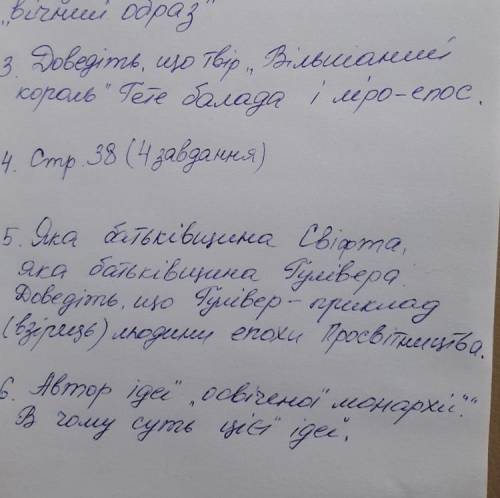 „вічний образ"
3. Доведіть, що твір „Вільшаний
король" Гете балада і ліро-епос.
4. Стр. 38 (4 завдання)
5. Яка батьківщина Свіфта,
яка батьківщина Гулівера.
Доведіть, що Гулівер - приклад
(взірець) людини епохи Просвітництва.
6. Автор ідеї „освіченої монархії".
В чому суть цієї ідеї.